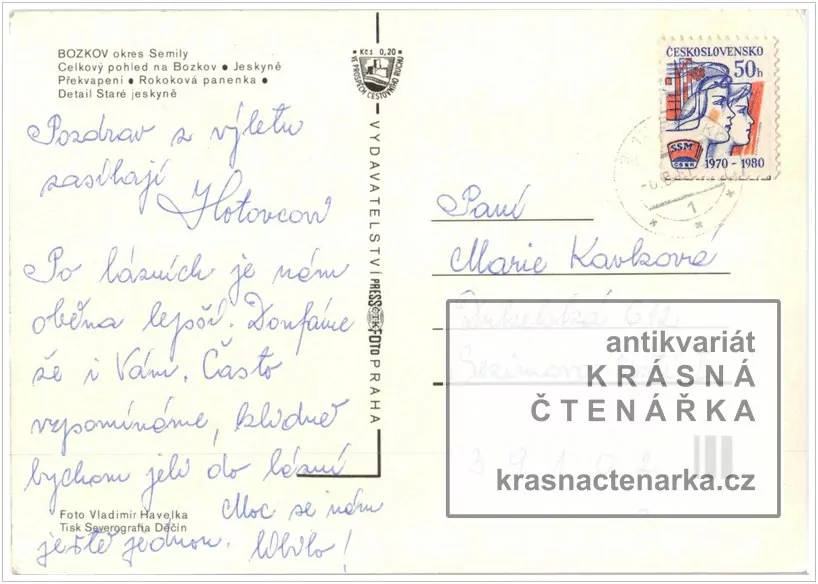 BOZKOV okres Semily
Celkový pohled na Bozkov ● Jeskyně
Překvapení ● Rokoková panenka ●
Detail Staré jeskyně
Pozdrav z výletu
zasílají
Hotovcovi
Po lázních je nám
oběma lepší. Doufáme
že i Vám. Často
vzpomínáme, klidně
bychom jeli do lázní
ještě jednou. Moc se nám
líbilo!
Foto Vladimír Havelka
Tisk Severografia Děčín
Kčs 0,20
VE PROSPĚCH CESTOVNÍHO RUCHU
VYDAVATELSTVÍ PRESSFOTO PRAHA
ČTK
ČESKOSLOVENSKO
50h
SSM
1970 - 1980
1
Paní
Marie Kavková
antikvariát
KRÁSNÁ
ČTENÁŘKA
krasnactenarka.cz